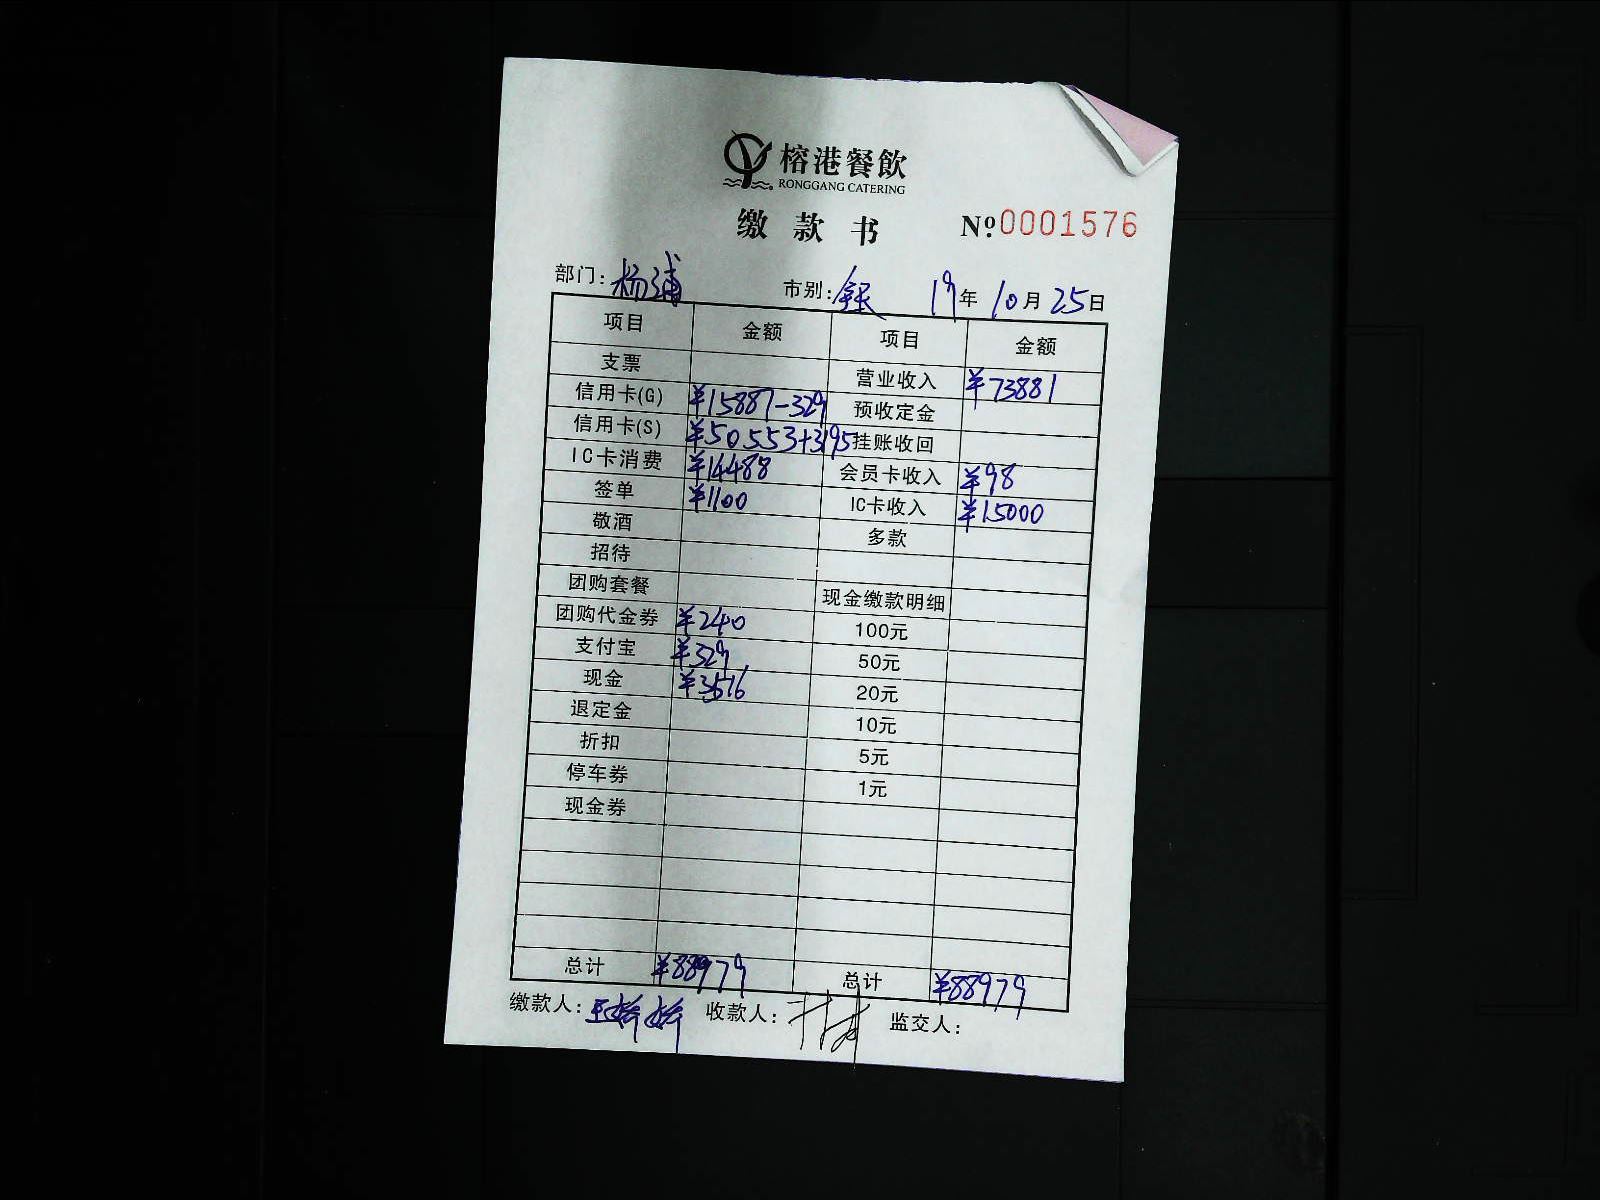 榕港餐飲
RONGGANG CATERING
缴款书 Nº 0001576
部门: 杨浦 市别: 19年 10月 25日
项目 金额 项目 金额
支票 营业收入 ¥73881
信用卡(G) ¥15887-329 预收定金
信用卡(S) ¥50553+3195 挂账收回
IC卡消费 ¥14488 会员卡收入 ¥98
签单 ¥1100 IC卡收入 ¥15000
敬酒 多款
招待
团购套餐 现金缴款明细
团购代金券 ¥240 100元
支付宝 ¥329 50元
现金 ¥3516 20元
退定金 10元
折扣 5元
停车券 1元
现金券
总计 ¥88979 总计 ¥88979
缴款人: 收款人: 监交人: